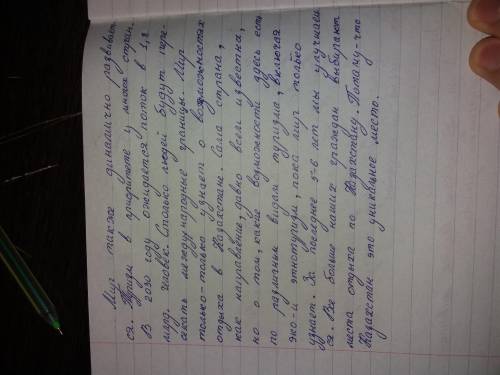 Мир также динамично развивает-
ся. Туризм в приоритете у многих стран.
В 2030 году ожидается поток в 1,8
млрд. человек. Столько людей будут пере-
секать международные границы. Мир
только-только узнает о возможностях
отдыха в Казахстане. Сама страна,
как направление, давно всем известна,
но о том, какие возможности здесь есть
по различным видам туризма, включая
эко- и этнотуризм, пока мир только
узнает. За последнее 5-6 лет мы улучшаем
ся. Все больше наших граждан выбирают
места отдыха по Казахстану. Потому-что
Казахстан это уникальное место.